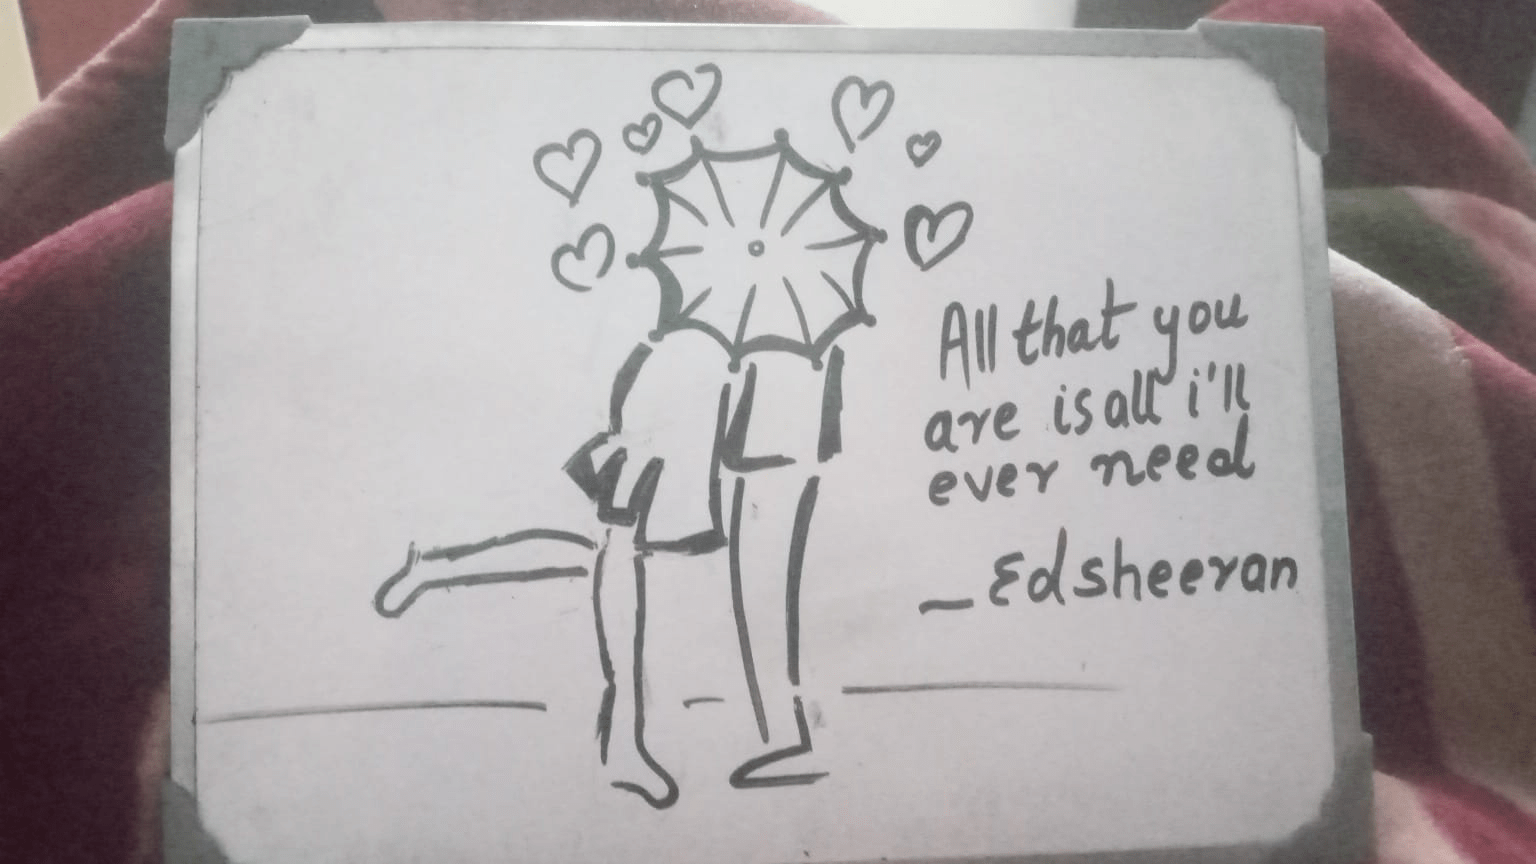 All that you
are is all i'll
ever need
_ Ed sheeran